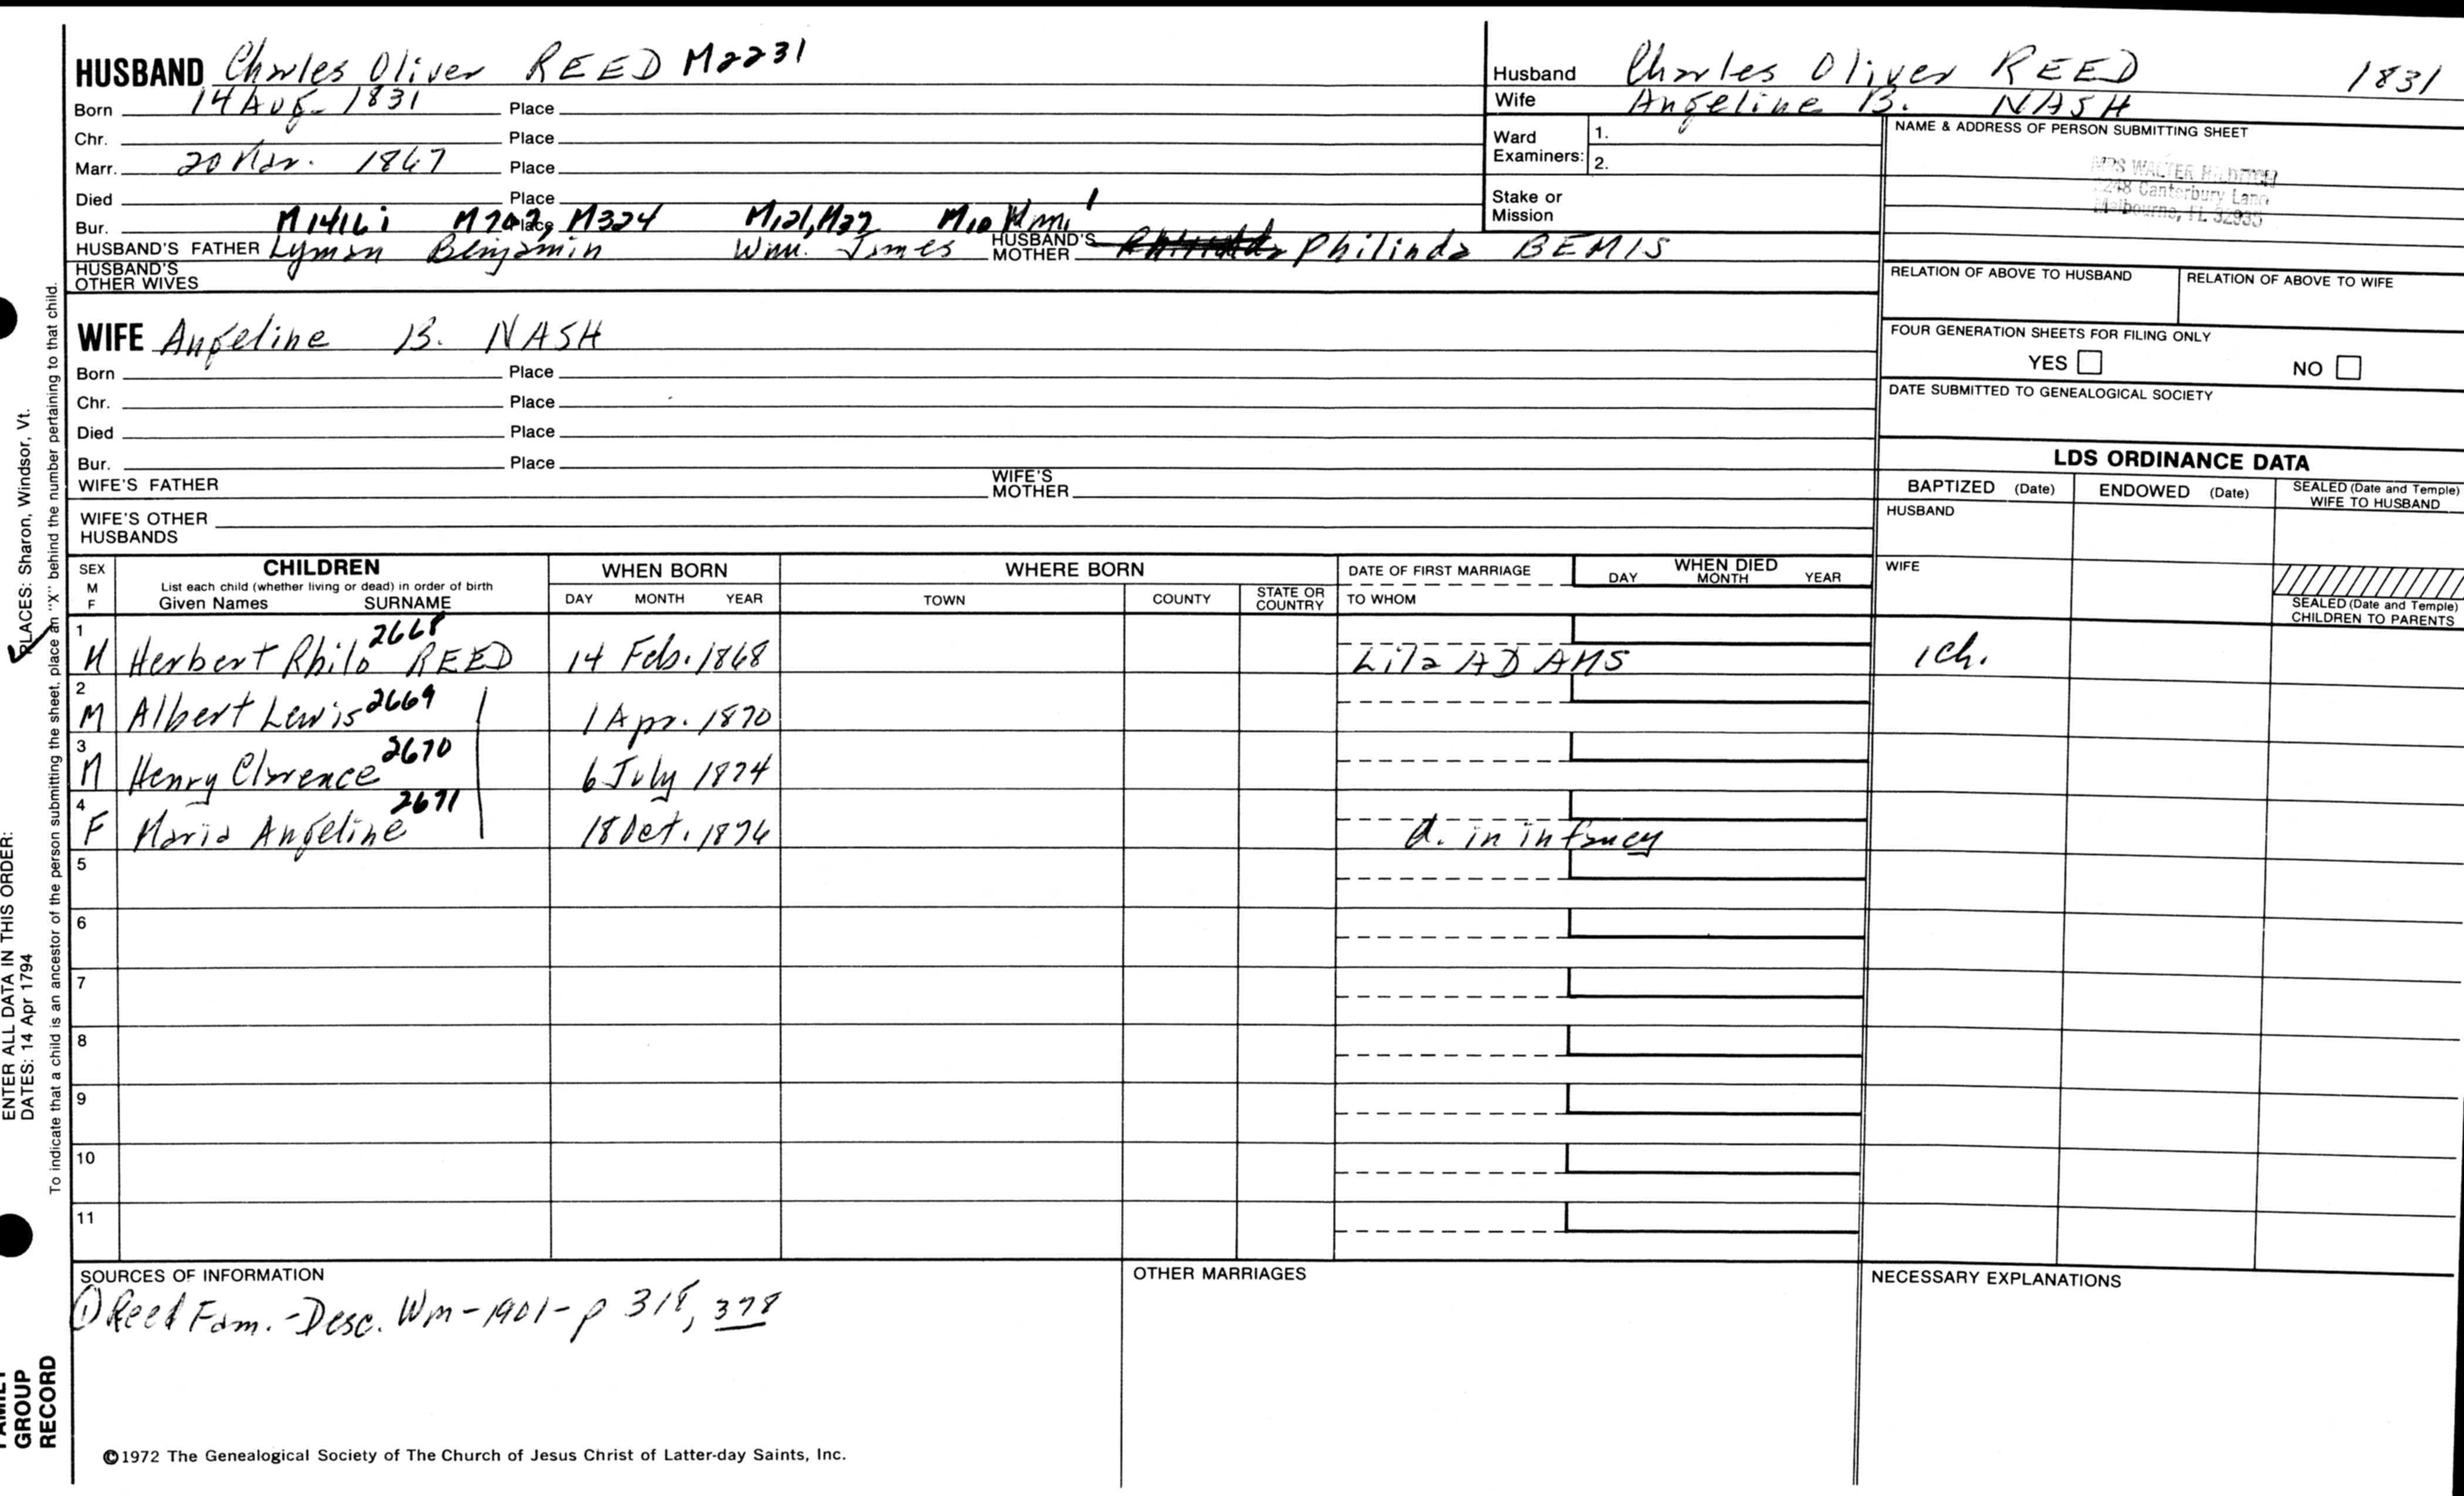 HUSBAND Charles Oliver REED M2231
Born 14 Aug. 1831 Place
Chr. Place
Marr. 20 Mar. 1867 Place
Died Place
Bur. M1416i M707, M324 M121, M37 M10 Wm. 1 Place
HUSBAND'S FATHER Lyman Benjamin Wm. James HUSBAND'S MOTHER Philinda BEMIS
HUSBAND'S OTHER WIVES
Husband Charles Oliver REED 1831
Wife Angeline B. NASH
Ward Examiners: 1.
2.
Stake or Mission
NAME & ADDRESS OF PERSON SUBMITTING SHEET
MRS WALTER
Canterbury Lane
Melbourne, FL 32935
RELATION OF ABOVE TO HUSBAND RELATION OF ABOVE TO WIFE
FOUR GENERATION SHEETS FOR FILING ONLY
YES NO
DATE SUBMITTED TO GENEALOGICAL SOCIETY
WIFE Angeline B. NASH
Born Place
Chr. Place
Died Place
Bur. Place
WIFE'S FATHER WIFE'S MOTHER
WIFE'S OTHER HUSBANDS
LDS ORDINANCE DATA
BAPTIZED (Date) ENDOWED (Date) SEALED (Date and Temple) WIFE TO HUSBAND
HUSBAND
WIFE
SEALED (Date and Temple) CHILDREN TO PARENTS
SEX M F
CHILDREN
List each child (whether living or dead) in order of birth
Given Names SURNAME
WHEN BORN
DAY MONTH YEAR
WHERE BORN
TOWN COUNTY STATE OR COUNTRY
DATE OF FIRST MARRIAGE
TO WHOM
WHEN DIED
DAY MONTH YEAR
1 M Herbert Philo 2668 REED 14 Feb. 1868 Lila ADAMS 1 ch.
2 M Albert Lewis 2669 1 Apr. 1870
3 M Henry Clarence 2670 6 July 1874
4 F Maria Angeline 2671 18 Oct. 1876 d. in infancy
5
6
7
8
9
10
11
SOURCES OF INFORMATION
① Reed Fam. - Desc. Wm - 1901 - p 318, 378
OTHER MARRIAGES
NECESSARY EXPLANATIONS
©1972 The Genealogical Society of The Church of Jesus Christ of Latter-day Saints, Inc.
ENTER ALL DATA IN THIS ORDER:
DATES: 14 Apr 1794
PLACES: Sharon, Windsor, Vt.
To indicate that a child is an ancestor of the person submitting the sheet, place an "X" behind the number pertaining to that child.
FAMILY
GROUP
RECORD